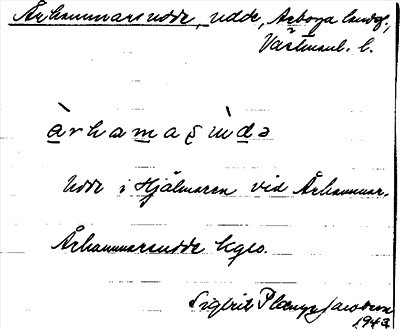 Århammarsudde, udde, Arboga landsf.,
Västmanl. l.
àrhamaṣùdə
Udde i Hjälmaren vid Århammar.
Århammarsudde Kgeo.
Sigbrit Plænge Jacobson
1942